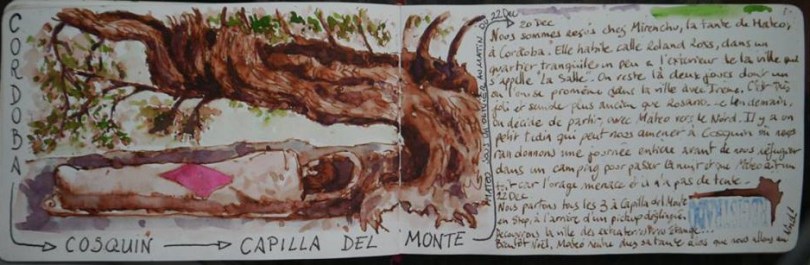 CORDOBA
COSQUIN
CAPILLA DEL MONTE
22 Dec
20 Dec
Nous sommes logés chez Mirenchu, la tante de Mateo,
à Cordoba. Elle habite calle Roland Ross, dans un
quartier tranquille un peu à l'extérieur de la ville qui
s'appelle "La Salle". On reste là deux jours dont un
où l'on se promène dans la ville avec Irene. C'est très
joli et semble plus ancien que Rosario. Le lendemain,
on décide de partir avec Mateo vers le Nord. Il y a un
petit train qui peut nous amener à Cosquin où nous
randonnons une journée entière avant de nous réfugier
dans un camping pour passer la nuit et que Mateo ait un
toit car l'orage menace et il n'a pas de tente.
22 Dec
Nous partons tous les 3 à Capilla del Monte
en stop, à l'arrière d'un pickup déglingué.
Découvrons la ville des extraterrestres étrange...
Bientôt Noël, Mateo rentre chez sa tante alors que nous allons au